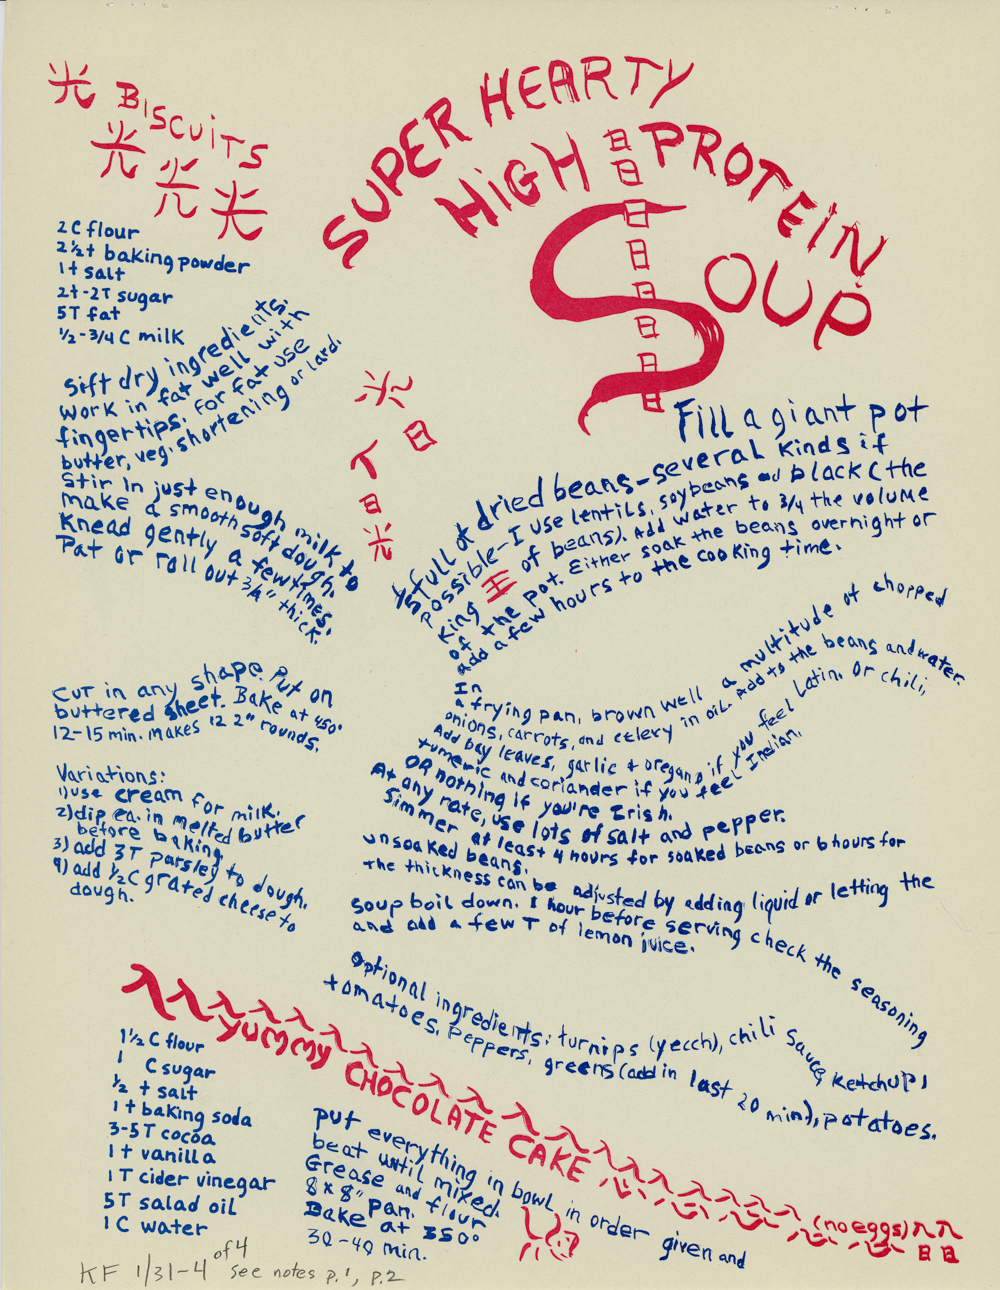 光 BISCUITS
光 光 光
2 C flour
2½ t baking powder
1 t salt
2t-2T sugar
5T fat
½-3/4 C milk
Sift dry ingredients.
Work in fat well with
fingertips. For fat use
butter, veg. shortening or lard.
Stir in just enough milk to
make a smooth soft dough.
Knead gently a few times.
Pat or roll out 3/4" thick.
Cut in any shape. Put on
buttered sheet. Bake at 450°
12-15 min. Makes 12 2" rounds.
Variations:
1) use cream for milk.
2) dip ea. in melted butter
before baking.
3) add 3T parsley to dough.
4) add ½C grated cheese to
dough.
SUPER HEARTY
HIGH PROTEIN
SOUP
日
日
日
日
日
日
日
日
光
日
人
日
光
Fill a giant pot
⅓ full of dried beans-several kinds if
possible-I use lentils, soybeans and black (the
king 王 of beans). Add water to 3/4 the volume
of the pot. Either soak the beans overnight or
add a few hours to the cooking time.
In
a frying pan, brown well a multitude of chopped
onions, carrots, and celery in oil. Add to the beans and water.
Add bay leaves, garlic + oregano if you feel Latin. Or chili,
tumeric and coriander if you feel Indian.
OR nothing if you're Irish.
At any rate, use lots of salt and pepper.
Simmer at least 4 hours for soaked beans or 6 hours for
unsoaked beans.
The thickness can be adjusted by adding liquid or letting the
soup boil down. 1 hour before serving check the seasoning
and add a few T of lemon juice.
Optional ingredients: turnips (yecch), chili sauce, ketchup,
tomatoes, peppers, greens (add in last 20 min), potatoes.
入入入入入入入入入入入入入入入入入入入入
YUMMY CHOCOLATE CAKE
(no eggs)
日日
1½ C flour
1 C sugar
½ t salt
1 t baking soda
3-5T cocoa
1 t vanilla
1 T cider vinegar
5T salad oil
1 C water
Put everything in bowl in order given and
beat until mixed.
Grease and flour
8 x 8" pan.
Bake at 350°
30-40 min.
KF 1/31-4 of 4 See notes p.1, p.2